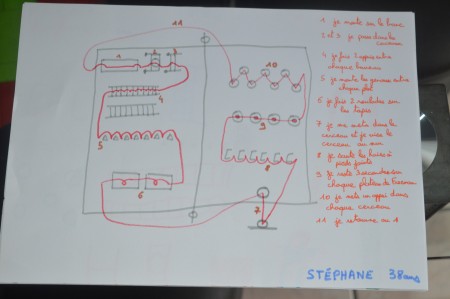 11
1
2
3
4
5
6
7
8
9
10
1 je monte sur le banc
2 et 3 je passe dans les cerceaux
4 je fais 2 appuis entre chaque barreau
5 je monte les genoux entre chaque plot
6 je fais 2 roulades sur les tapis
7 je me mets dans le cerceau et je vise le cerceau au mur
8 je saute les haies à pieds joints
9 je reste 3 secondes sur chaque plateau de
10 je mets un appui dans chaque cerceau
11 je retourne au 1
STÉPHANE 38ans